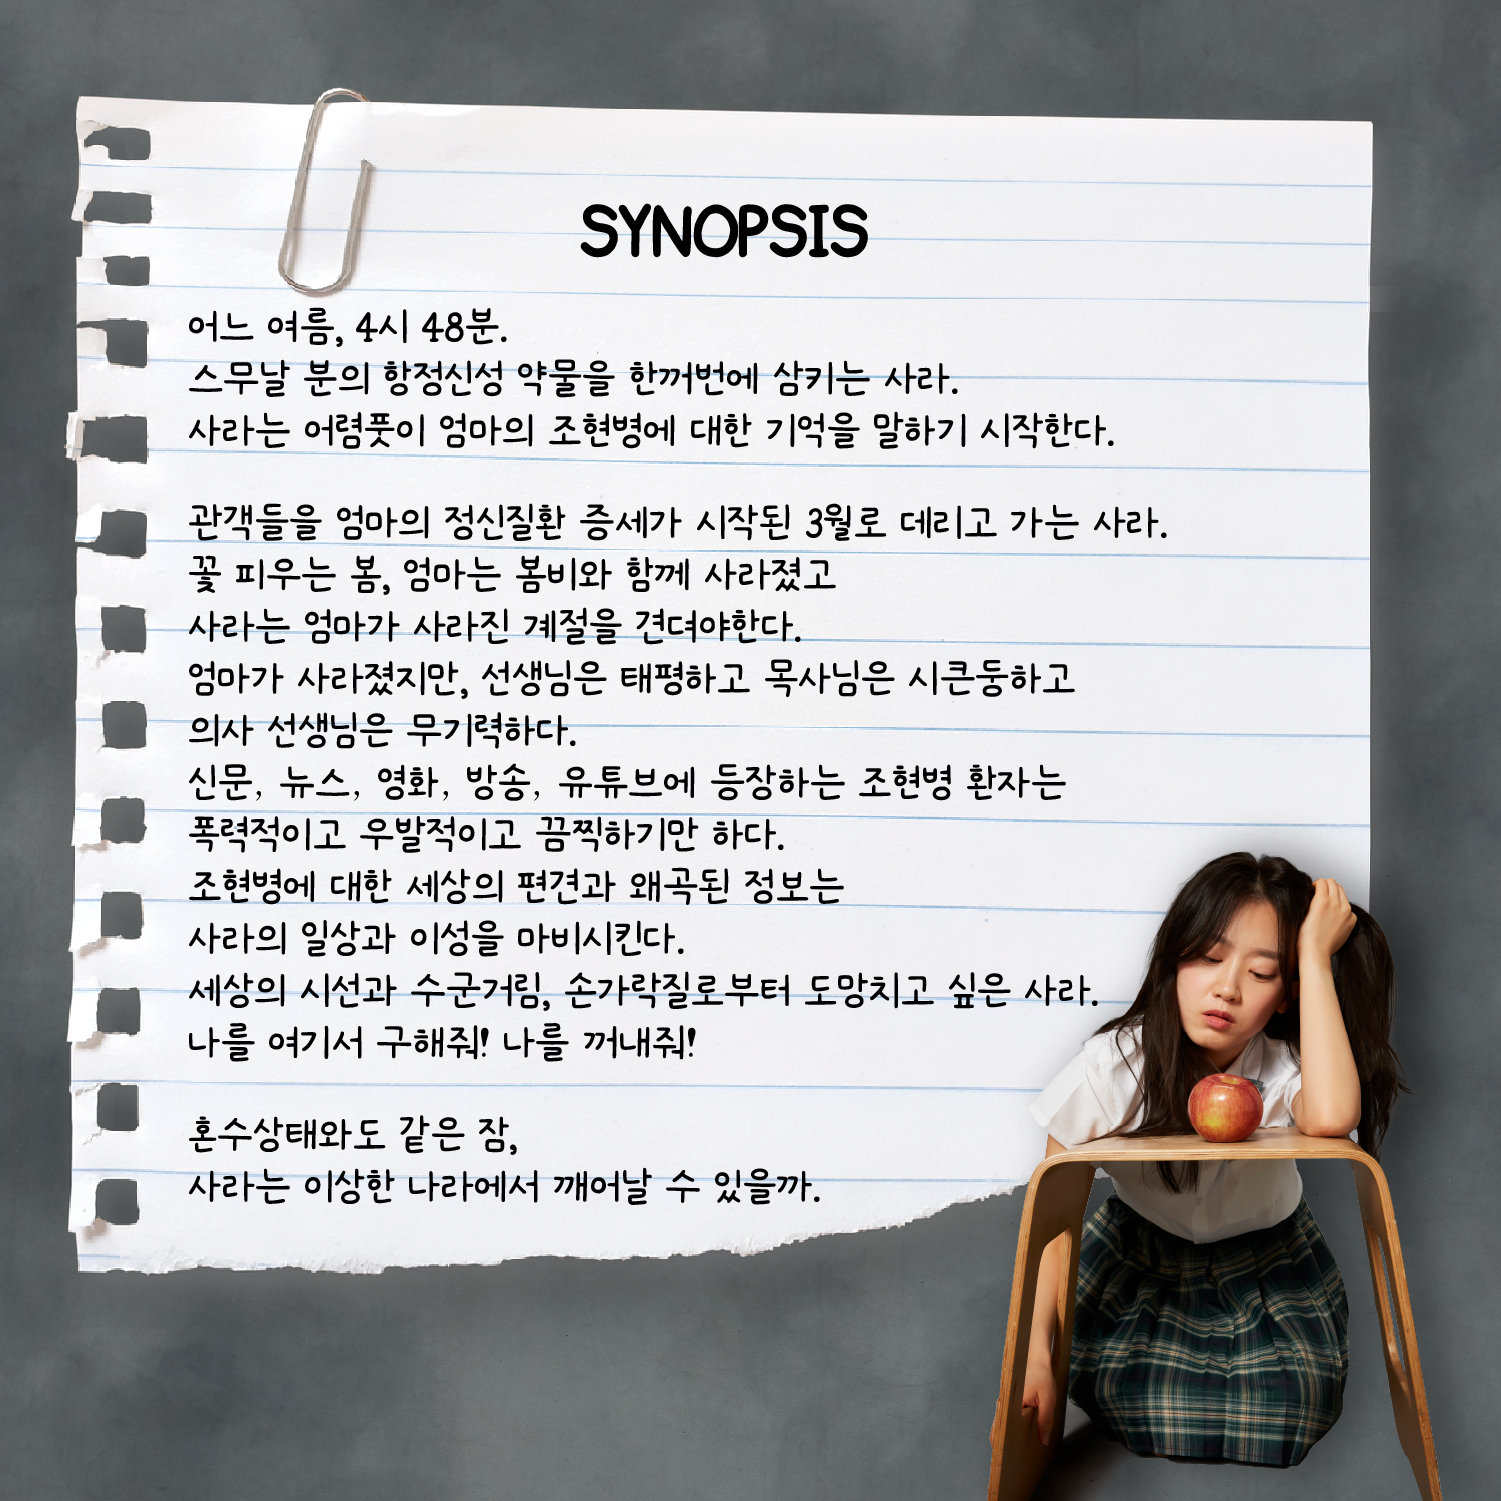 SYNOPSIS
어느 여름, 4시 48분.
스무날 분의 항정신성 약물을 한꺼번에 삼키는 사라.
사라는 어렴풋이 엄마의 조현병에 대한 기억을 말하기 시작한다.
관객들을 엄마의 정신질환 증세가 시작된 3월로 데리고 가는 사라.
꽃 피우는 봄, 엄마는 봄비와 함께 사라졌고
사라는 엄마가 사라진 계절을 견뎌야한다.
엄마가 사라졌지만, 선생님은 태평하고 목사님은 시큰둥하고
의사 선생님은 무기력하다.
신문, 뉴스, 영화, 방송, 유튜브에 등장하는 조현병 환자는
폭력적이고 우발적이고 끔찍하기만 하다.
조현병에 대한 세상의 편견과 왜곡된 정보는
사라의 일상과 이성을 마비시킨다.
세상의 시선과 수군거림, 손가락질로부터 도망치고 싶은 사라.
나를 여기서 구해줘! 나를 꺼내줘!
혼수상태와도 같은 잠,
사라는 이상한 나라에서 깨어날 수 있을까.